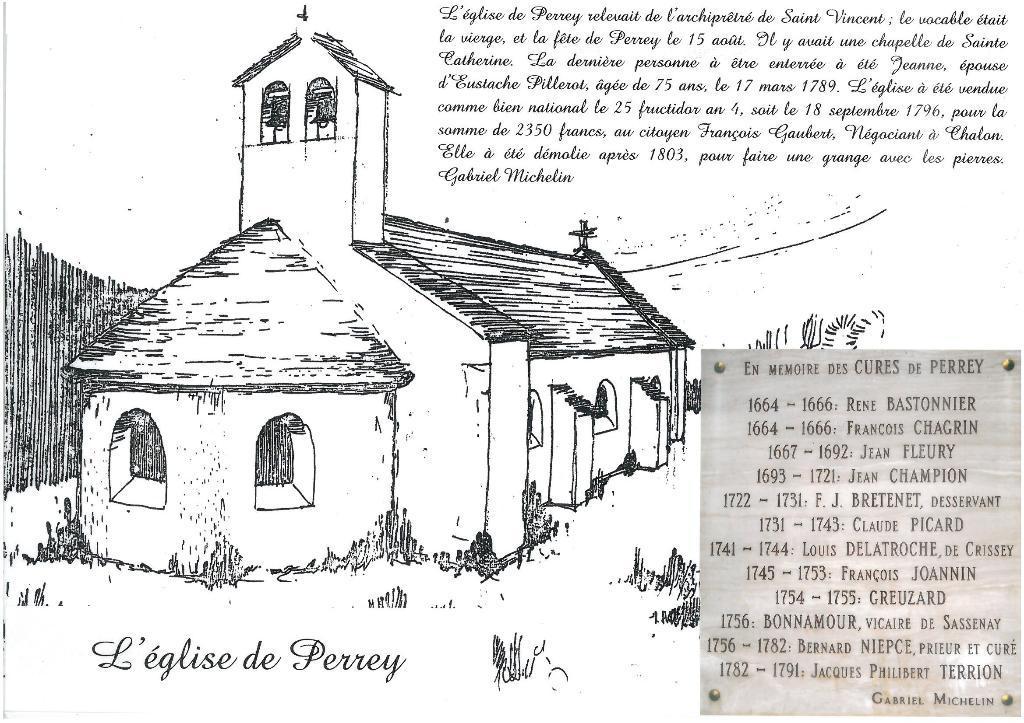 L'église de Perrey relevait de l'archiprêtré de Saint Vincent ; le vocable était
la vierge, et la fête de Perrey le 15 août. Il y avait une chapelle de Sainte
Catherine. La dernière personne à être enterrée à été Jeanne, épouse
d'Eustache Pillerot, âgée de 75 ans, le 17 mars 1789. L'église à été vendue
comme bien national le 25 fructidor an 4, soit le 18 septembre 1796, pour la
somme de 2350 francs, au citoyen François Gaubert, Négociant à Chalon.
Elle à été démolie après 1803, pour faire une grange avec les pierres.
Gabriel Michelin
EN MEMOIRE DES CURES DE PERREY
1664 – 1666: RENE BASTONNIER
1664 – 1666: FRANÇOIS CHAGRIN
1667 – 1692: JEAN FLEURY
1693 – 1721: JEAN CHAMPION
1722 – 1731: F. J. BRETENET, DESSERVANT
1731 – 1743: CLAUDE PICARD
1741 – 1744: LOUIS DELATROCHE, DE CRISSEY
1745 – 1753: FRANÇOIS JOANNIN
1754 – 1755: GREUZARD
1756: BONNAMOUR, VICAIRE DE SASSENAY
1756 – 1782: BERNARD NIEPCE, PRIEUR ET CURÉ
1782 – 1791: JACQUES PHILIBERT TERRION
GABRIEL MICHELIN
L'église de Perrey